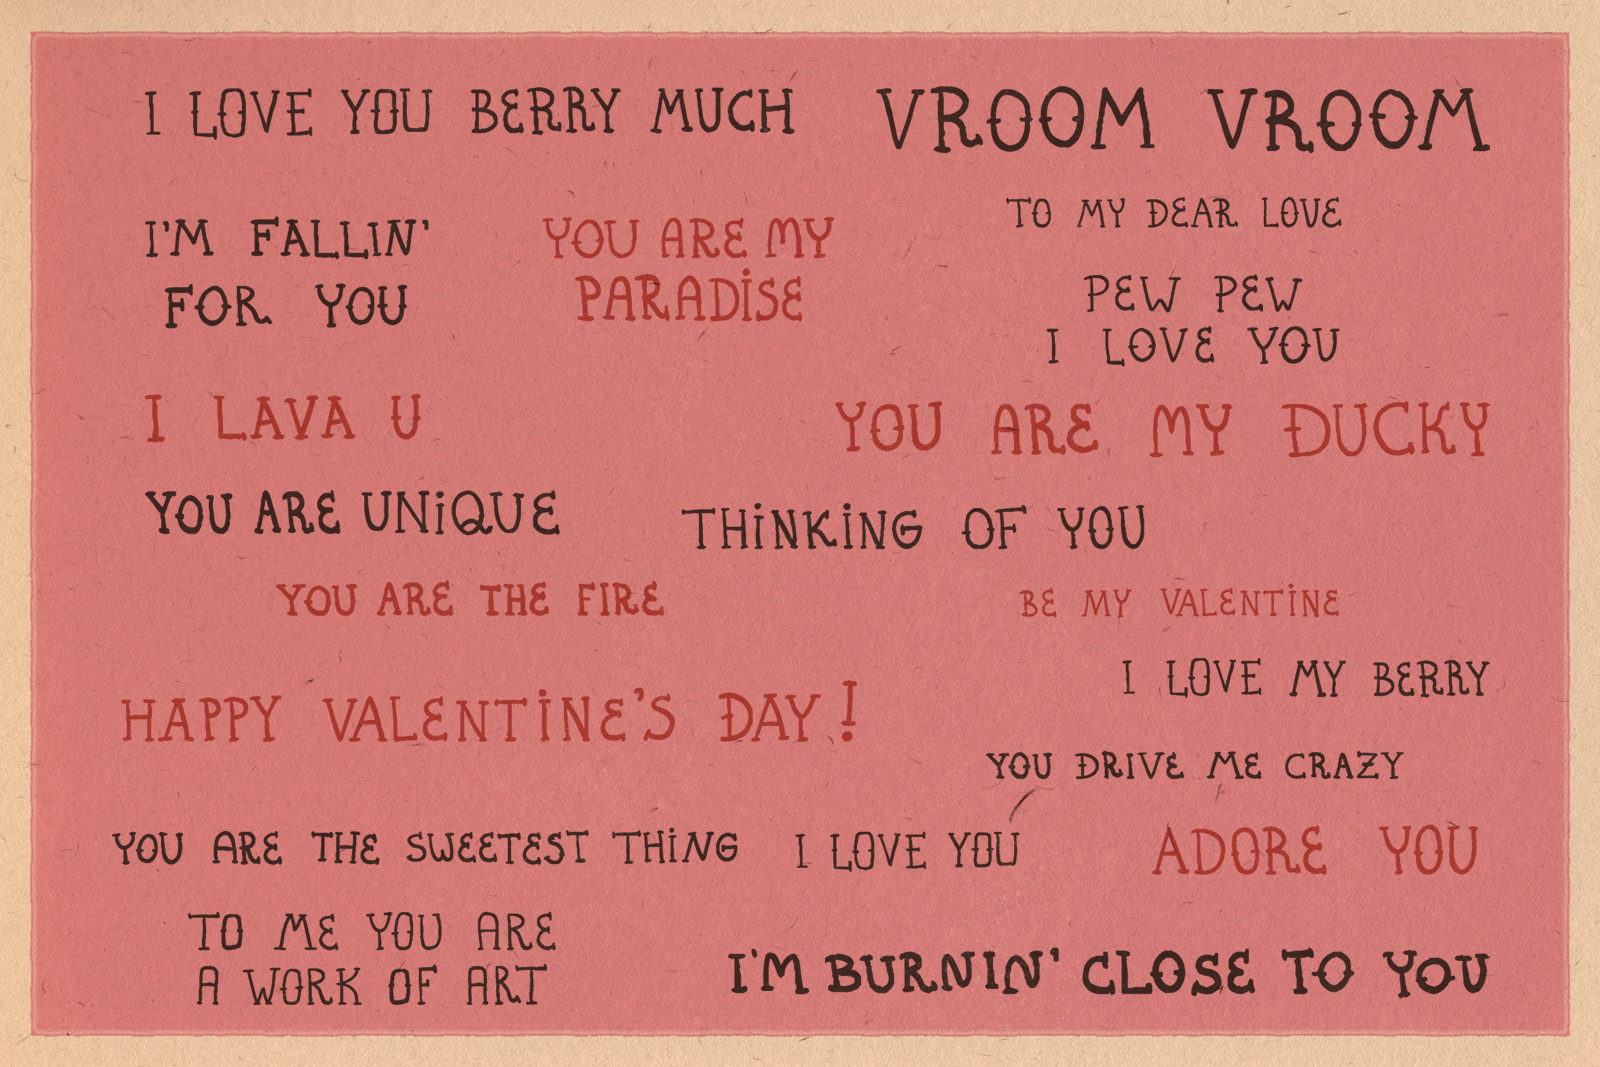 I LOVE YOU BERRY MUCH
VROOM VROOM
TO MY DEAR LOVE
I'M FALLIN'
FOR YOU
YOU ARE MY
PARADISE
PEW PEW
I LOVE YOU
I LAVA U
YOU ARE MY DUCKY
YOU ARE UNIQUE
THINKING OF YOU
YOU ARE THE FIRE
BE MY VALENTINE
I LOVE MY BERRY
HAPPY VALENTINE'S DAY!
YOU DRIVE ME CRAZY
YOU ARE THE SWEETEST THING
I LOVE YOU
ADORE YOU
TO ME YOU ARE
A WORK OF ART
I'M BURNIN' CLOSE TO YOU